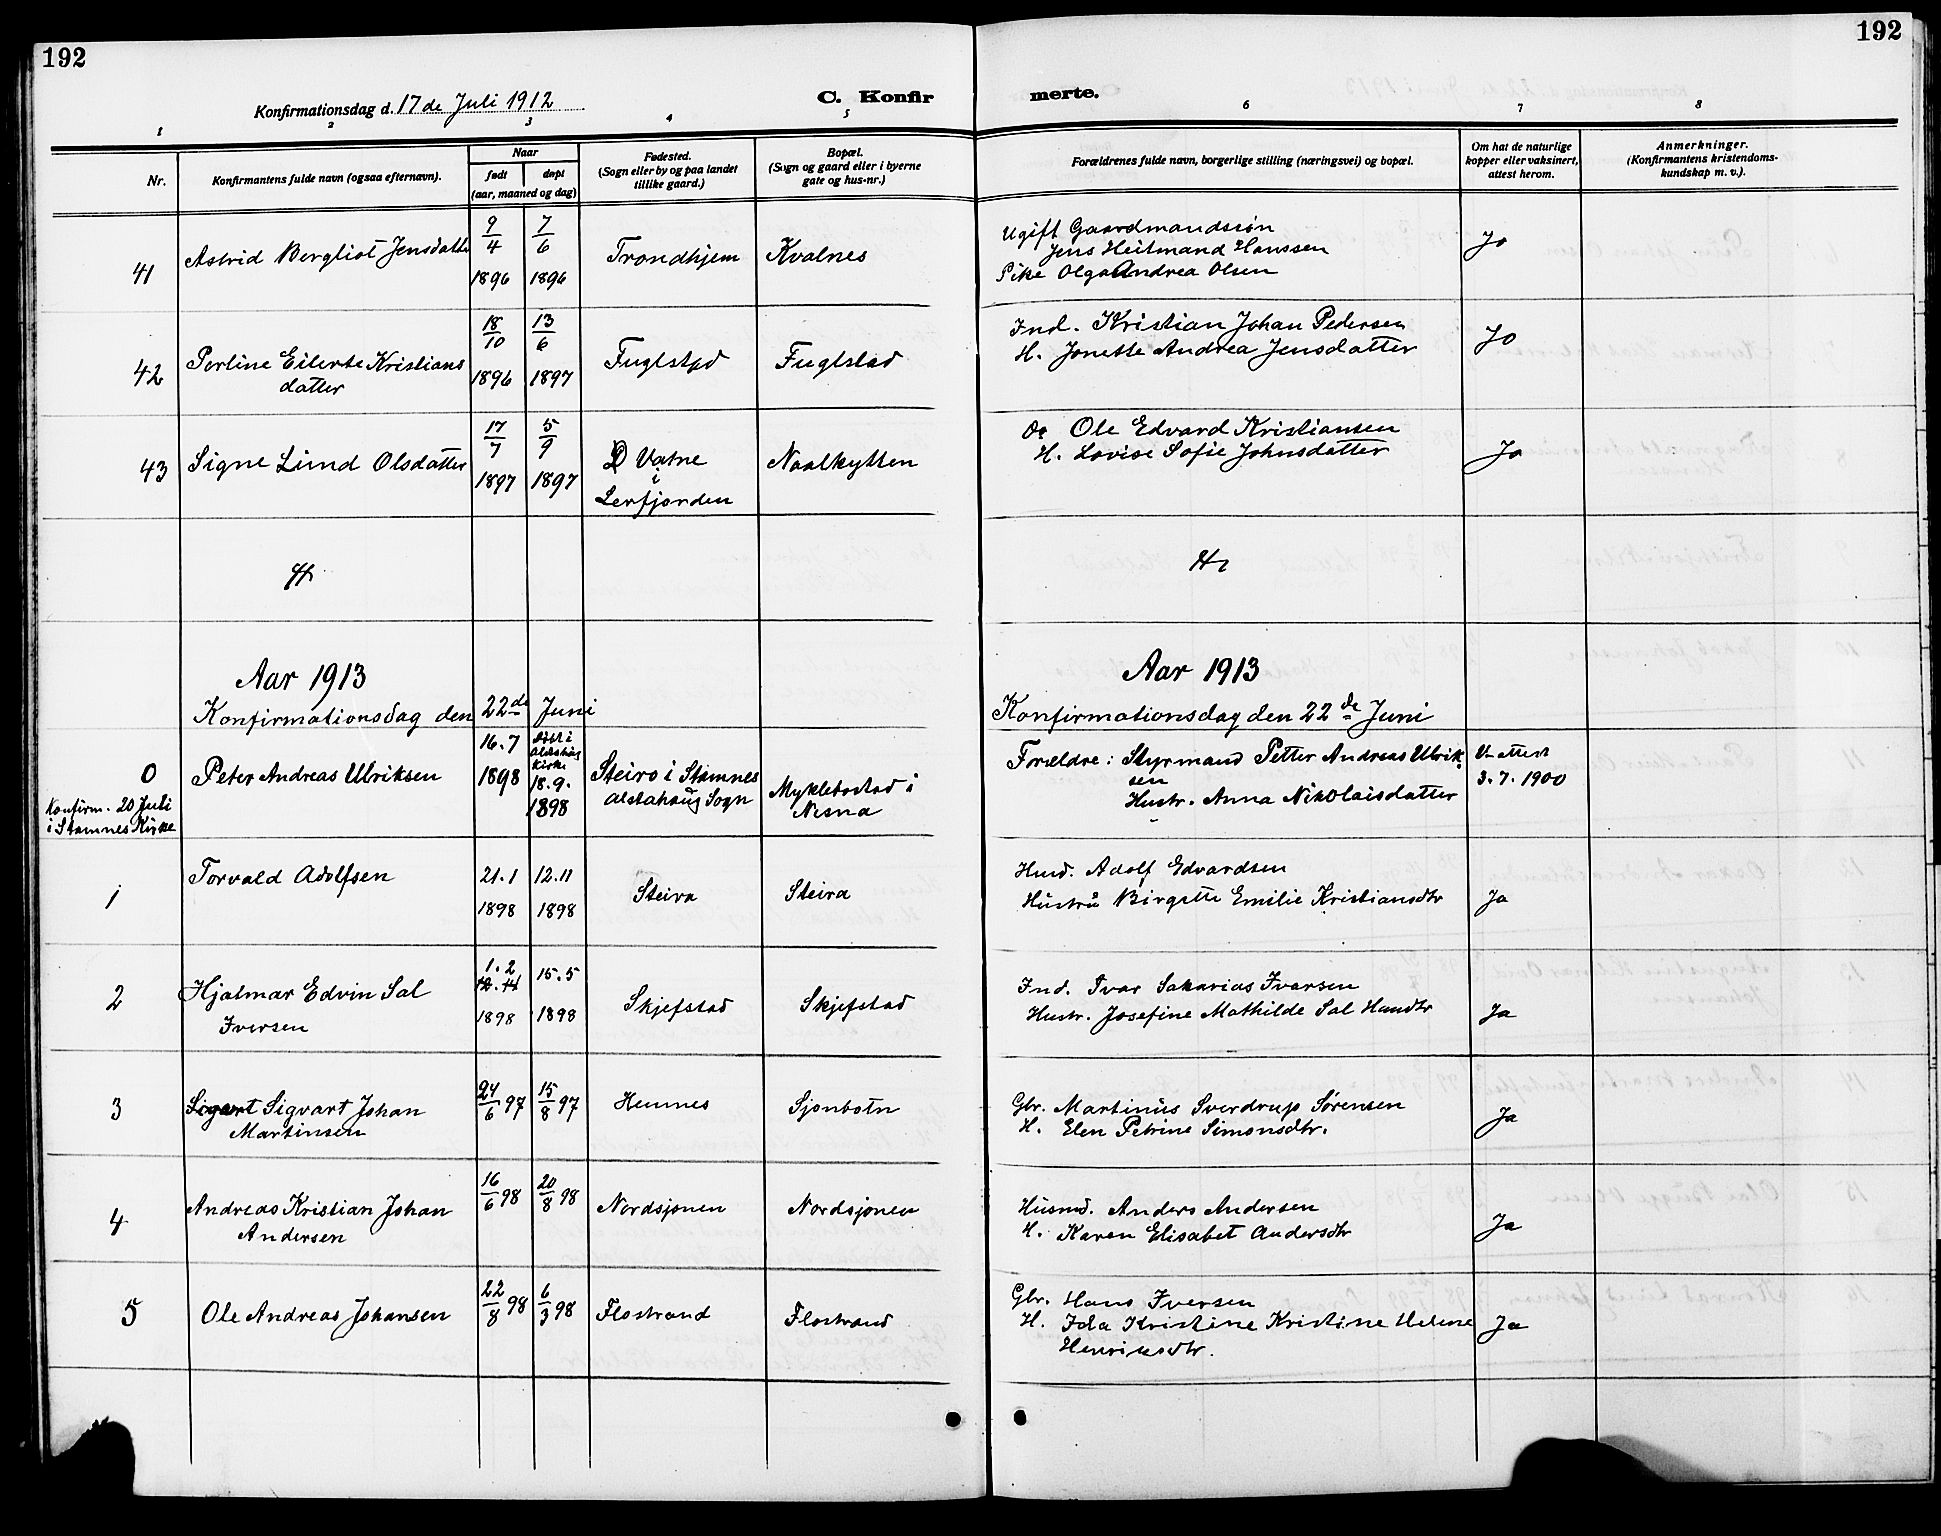 192
192
Konfirmationsdag d. 17de Juli 1912
C. Konfir
merte.
1 2 3 4 5 6 7 8
Nr.
Konfirmantens fulde navn (ogsaa efternavn).
Naar
født
døpt
(aar, maaned og dag)
Fødested.
(Sogn eller by og paa landet
tillike gaard.)
Bopæl.
(Sogn og gaard eller i byerne
gate og hus-nr.)
Forældrenes fulde navn, borgerlige stilling (næringsvei) og bopæl.
Om hat de naturlige
kopper eller vaksinert,
attest herom.
Anmerkninger.
(Konfirmantens kristendoms-
kundskap m. v.).
41 Astrid Bergliot Jensdatte 9/4 1896 7/6 1896 Trondhjem Kvalnes
Ugift Gaardmandssøn
Jens Heitmand Hanssen
Pike Olga Andrea Olsen
Ja
42 Perline Eilerte Kristians
datter
18/10 1896 13/6 1897 Fuglstad Fuglstad
Ind. Kristian Johan Pedersen
H. Jonette Andrea Jensdatter
Ja
43 Signe Lund Olsdatter 17/7 1897 5/9 1897
Vatne
i
Lerfjorden
Naalkytten
Ole Edvard Kristiansen
H. Lovise Sofie Johnsdatter
Ja
Aar 1913
Konfirmationsdag den 22de Juni
Aar 1913
Konfirmationsdag den 22de Juni
0
Konfirm. 20 Juli
i Stamnes Kirke
Peter Andreas Ulriksen
16.7
1898
døbt i
Alstahaug
Kirke
18.9.
1898
Steiro i Stamnes
Alstahaug Sogn
Myklebostad i
Nesna
Forældre: Styrmand Petter Andreas Ulrik
sen
Hustr. Anna Nikolaisdatter
V. attest
3.7.1900
1 Torvald Adolfsen 21.1 1898 12.11 1898 Steira Steira
Husd. Adolf Edvardsen
Hustru Birgitte Emilie Kristiansdtr
Ja
2 Hjalmar Edvin Sal
Iversen
1.2
1898
15.5
1898
Skjefstad Skjefstad
Ind. Ivar Sakarias Ivarsen
Hustr. Josefine Mathilde Sal Hansdtr
Ja
3 Sigvart Sigvart Johan
Martinsen
24/6 97 15/8 97 Hemnes Sjonbotn
Gbr. Martinus Sverdrup Sørensen
H. Elen Petrine Simonsdtr.
Ja
4 Andreas Kristian Johan
Andersen
16/6 98 20/8 98 Nordsjonen Nordsjonen
Husmd. Anders Andersen
H. Karen Elisabet Andersdtr
Ja
5 Ole Andreas Johansen 22/8 98 6/3 98 Flostrand Flostrand
Gbr. Hans Iversen
H. Ida Kristine Kristine Helene
Henriksdtr.
Ja